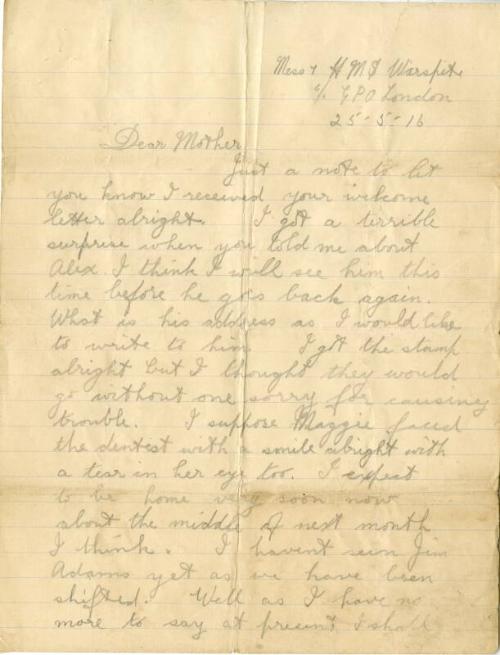 Mess 4 H M S Warspite
c/o G P O London
25-5-16
Dear Mother
Just a note to let
you know I received your welcome
letter alright. I got a terrible
surprise when you told me about
Alex. I think I will see him this
time before he goes back again.
What is his address as I would like
to write to him I got the stamp
alright but I thought they would
go without one sorry for causing
trouble. I suppose Maggie faced
the dentest with a smile alright with
a tear in her eye too. I expect
to be home very soon now
about the middle of next month
I think. I havent seen Jim
Adams yet as we have been
shifted. Well as I have no
more to say at present I shall